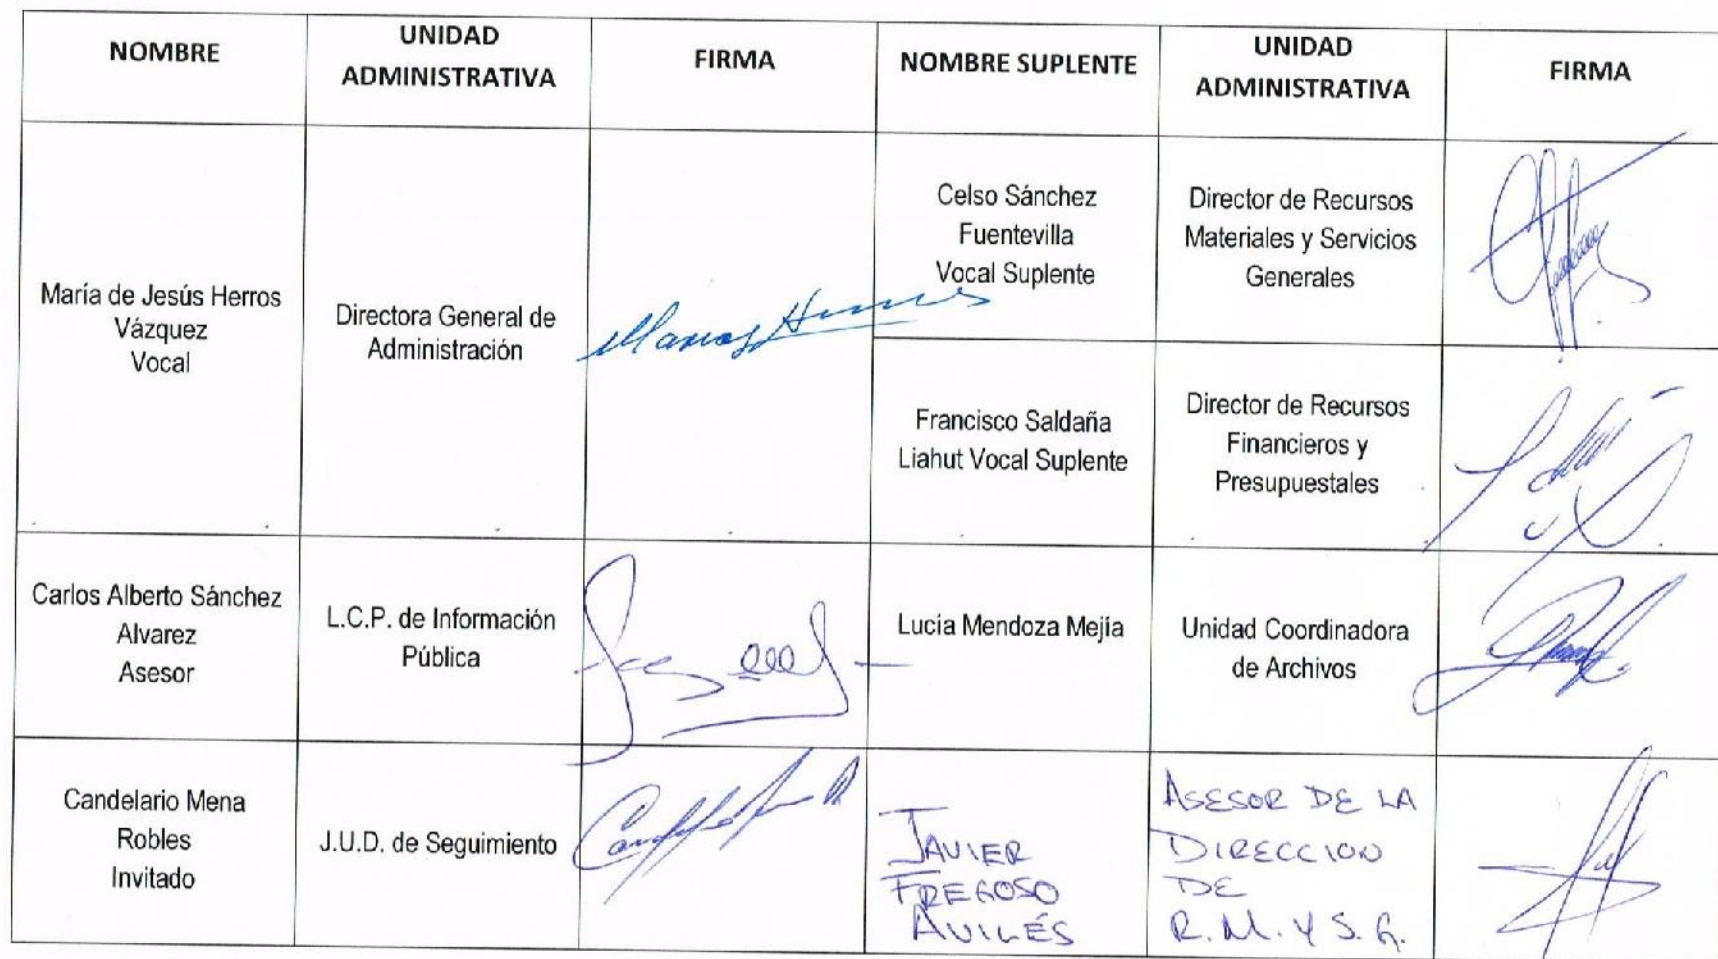 NOMBRE
UNIDAD
ADMINISTRATIVA
FIRMA
NOMBRE SUPLENTE
UNIDAD
ADMINISTRATIVA
FIRMA
María de Jesús Herros
Vázquez
Vocal
Directora General de
Administración
Celso Sánchez
Fuentevilla
Vocal Suplente
Director de Recursos
Materiales y Servicios
Generales
Francisco Saldaña
Liahut Vocal Suplente
Director de Recursos
Financieros y
Presupuestales
Carlos Alberto Sánchez
Alvarez
Asesor
L.C.P. de Información
Pública
Lucía Mendoza Mejía
Unidad Coordinadora
de Archivos
Candelario Mena
Robles
Invitado
J.U.D. de Seguimiento
JAVIER
FREGOSO
AVILÉS
ASESOR DE LA
DIRECCION
DE
R.M. Y S.G.